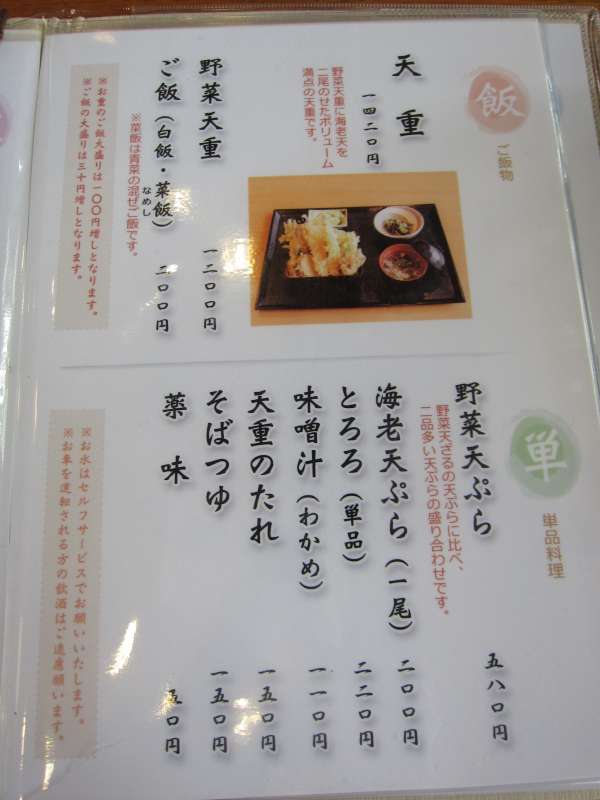 飯
ご飯物
天重
一四二〇円
野菜天重に海老天を
二尾のせたボリューム
満点の天重です。
野菜天重
一二〇〇円
ご飯（白飯・菜飯）
なめし
二〇〇円
※菜飯は青菜の混ぜご飯です。
※お重のご飯大盛りは一〇〇円増しとなります。
※ご飯の大盛りは三十円増しとなります。
単
単品料理
野菜天ぷら
五八〇円
野菜天ざるの天ぷらに比べ、
二品多い天ぷらの盛り合わせです。
海老天ぷら（一尾）
二〇〇円
とろろ（単品）
二二〇円
味噌汁（わかめ）
一一〇円
天重のたれ
一五〇円
そばつゆ
一五〇円
薬味
五〇円
※お水はセルフサービスでお願いいたします。
※お車を運転される方の飲酒はご遠慮願います。